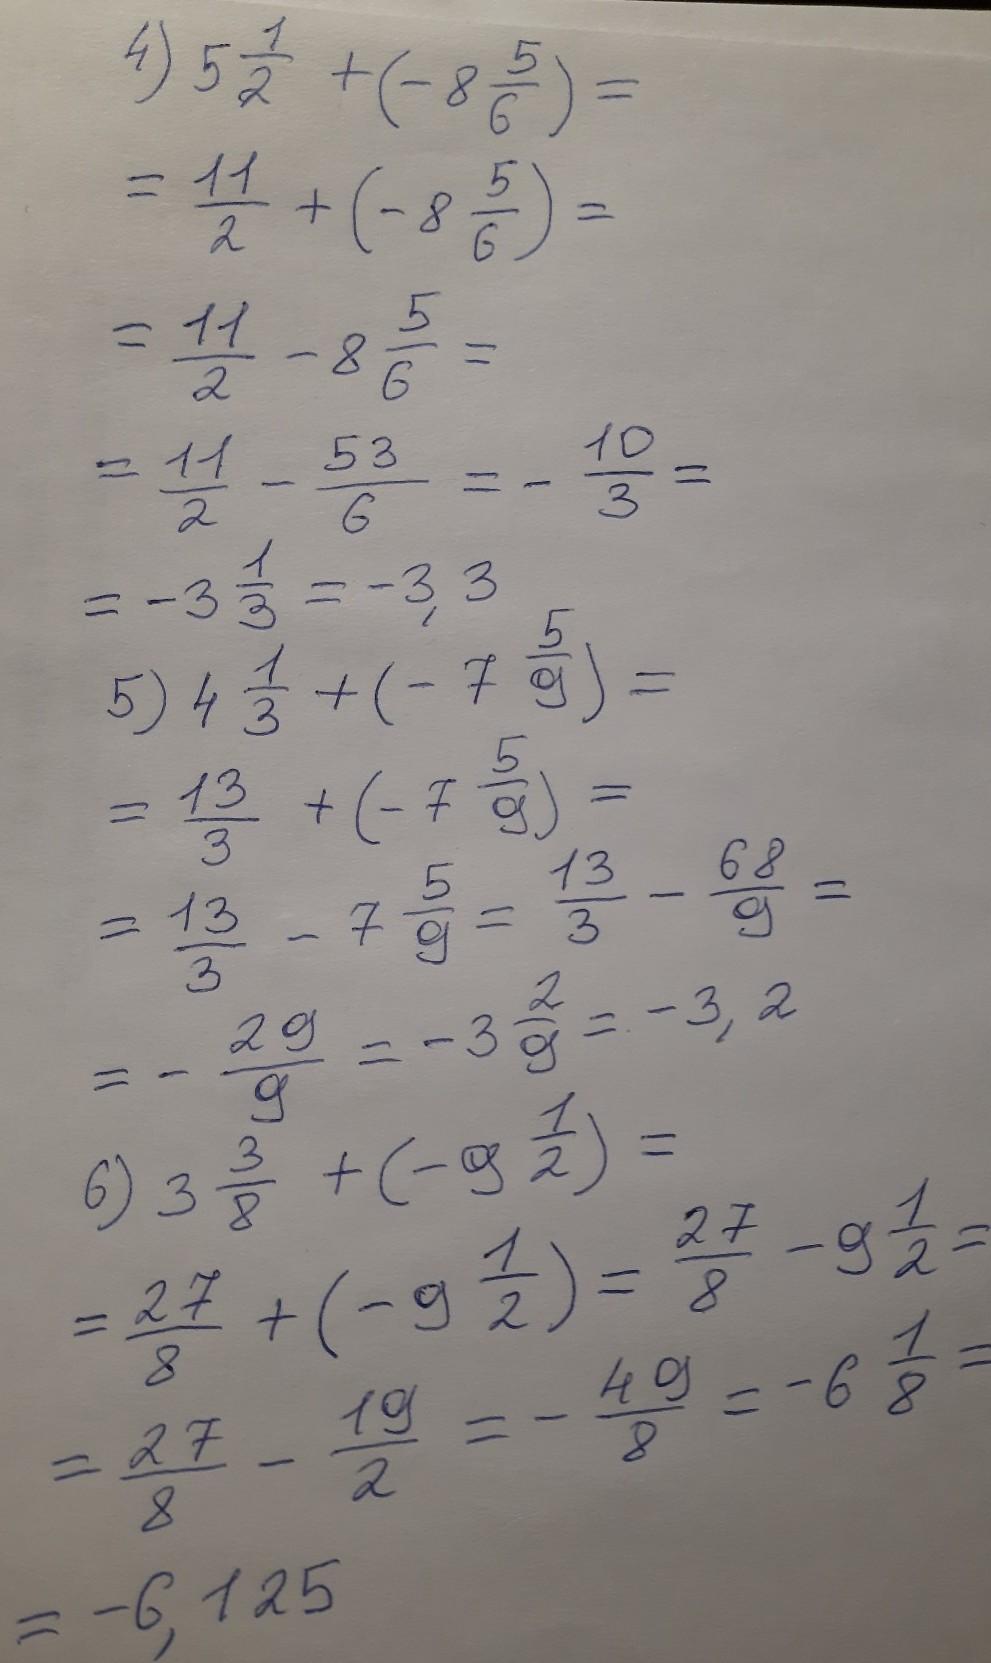 4) 5 1/2 + (- 8 5/6) =
= 11/2 + (- 8 5/6) =
= 11/2 - 8 5/6 =
= 11/2 - 53/6 = - 10/3 =
= - 3 1/3 = - 3,3
5) 4 1/3 + (- 7 5/9) =
= 13/3 + (- 7 5/9) =
= 13/3 - 7 5/9 = 13/3 - 68/9 =
= - 29/9 = - 3 2/9 = - 3,2
6) 3 3/8 + (- 9 1/2) =
= 27/8 + (- 9 1/2) = 27/8 - 9 1/2 =
= 27/8 - 19/2 = - 49/8 = - 6 1/8 =
= - 6,125